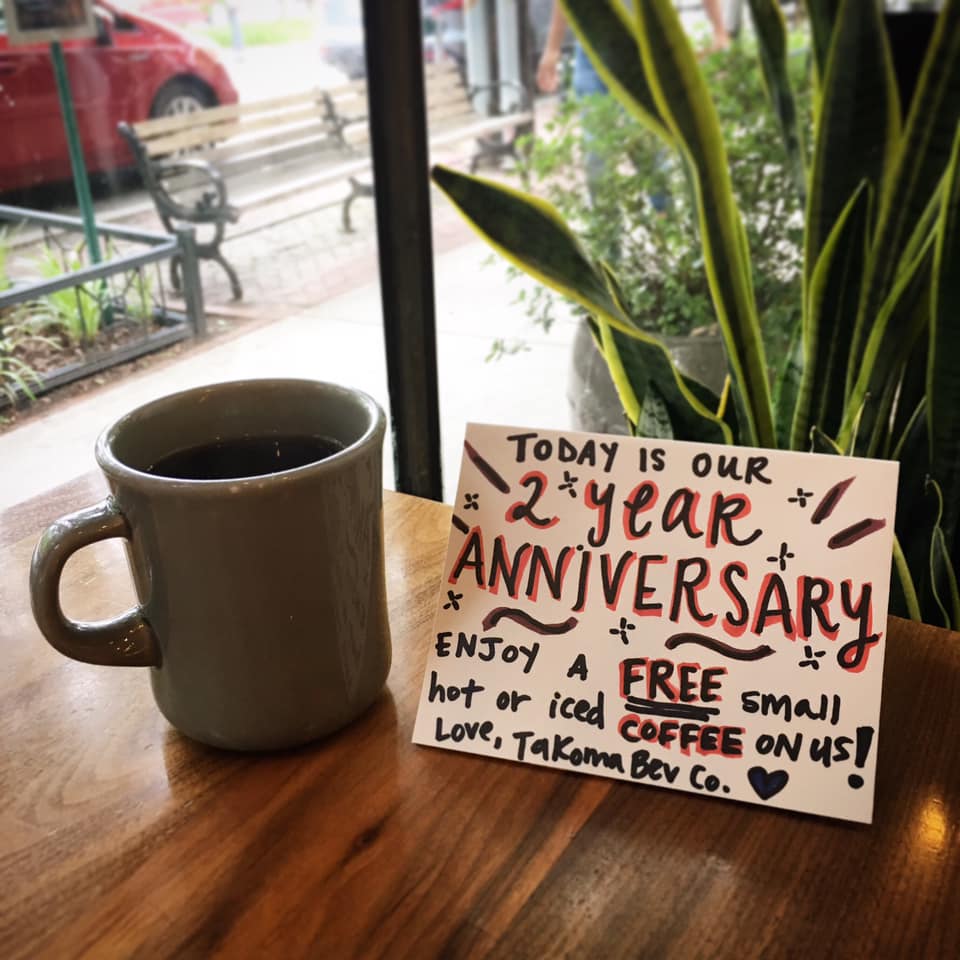 TODAY IS OUR
2 YEAR
ANNIVERSARY
ENJOY A FREE small
hot or iced COFFEE ON US!
Love, Takoma Bev Co.